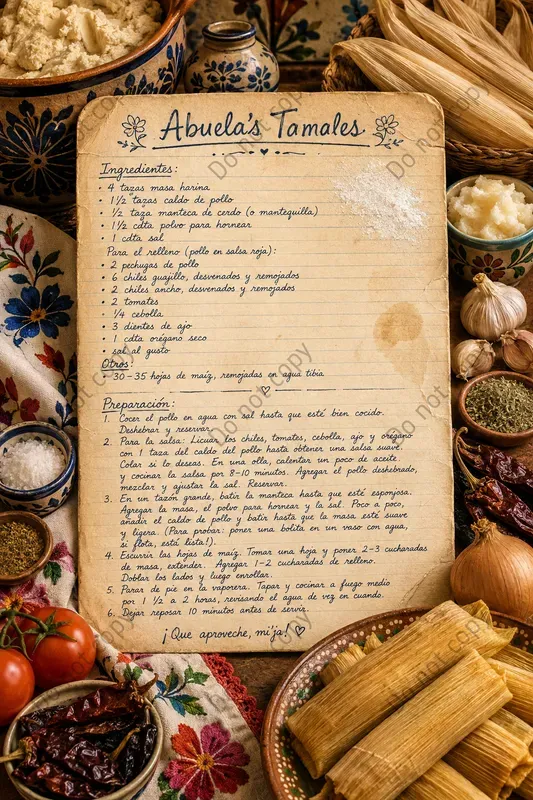 Abuela's Tamales
Ingredientes:
• 4 tazas masa harina
• 1 1/2 tazas caldo de pollo
• 1/2 taza manteca de cerdo (o mantequilla)
• 1 1/2 cdta polvo para hornear
• 1 cdta sal
Para el relleno (pollo en salsa roja):
• 2 pechugas de pollo
• 6 chiles guajillo, desvenados y remojados
• 2 chiles ancho, desvenados y remojados
• 2 tomates
• 1/4 cebolla
• 3 dientes de ajo
• 1 cdta orégano seco
• sal al gusto
Otros:
• 30-35 hojas de maíz, remojadas en agua tibia
Preparación:
1. Cocer el pollo en agua con sal hasta que esté bien cocido.
Deshebrar y reservar.
2. Para la salsa: Licuar los chiles, tomates, cebolla, ajo y orégano
con 1 taza del caldo del pollo hasta obtener una salsa suave.
Colar si lo deseas. En una olla, calentar un poco de aceite
y cocinar la salsa por 8-10 minutos. Agregar el pollo deshebrado,
mezclar y ajustar la sal. Reservar.
3. En un tazón grande, batir la manteca hasta que esté esponjosa.
Agregar la masa, el polvo para hornear y la sal. Poco a poco,
añadir el caldo de pollo y batir hasta que la masa esté suave
y ligera. (Para probar: poner una bolita en un vaso con agua,
si flota, está lista!).
4. Escurrir las hojas de maíz. Tomar una hoja y poner 2-3 cucharadas
de masa, extender. Agregar 1-2 cucharadas de relleno.
Doblar los lados y luego enrollar.
5. Parar de pie en la vaporera. Tapar y cocinar a fuego medio
por 1 1/2 a 2 horas, revisando el agua de vez en cuando.
6. Dejar reposar 10 minutos antes de servir.
¡Que aproveche, mi'ja!
Do not copy
Do not copy
Do not copy
Do not copy
Do not copy
Do not copy
Do not copy
Do not copy